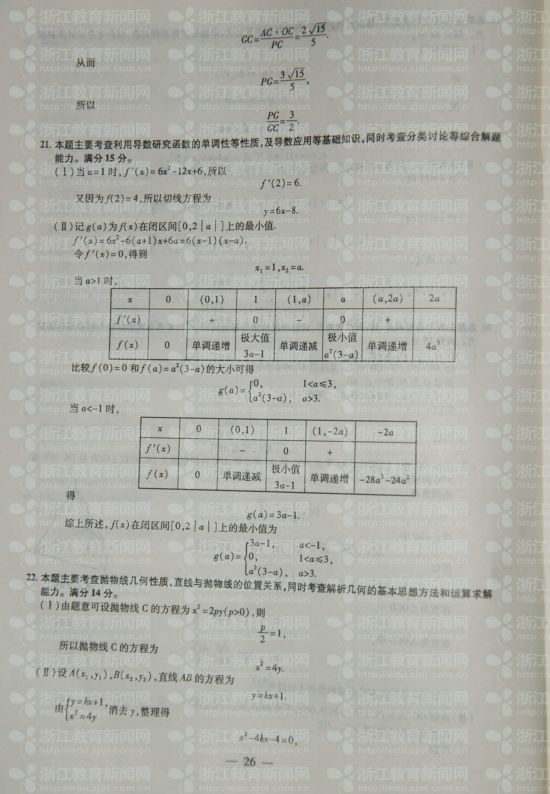 GC=AC·OC/PC=2√15/5.
从而
PG=3√15/5,
所以
PG/GC=3/2.
21. 本题主要考查利用导数研究函数的单调性等性质,及导数应用等基础知识,同时考查分类讨论等综合解题
能力。满分15分。
(Ⅰ)当a=1时,f′(x)=6x²-12x+6,所以
f′(2)=6.
又因为f(2)=4,所以切线方程为
y=6x-8.
(Ⅱ)记g(a)为f(x)在闭区间[0,2|a|]上的最小值.
f′(x)=6x²-6(a+1)x+6a=6(x-1)(x-a).
令f′(x)=0,得到
x₁=1,x₂=a.
当a>1时,
x 0 (0,1) 1 (1,a) a (a,2a) 2a
f′(x) + 0 - 0 +
f(x) 0 单调递增 极大值 3a-1 单调递减 极小值 a²(3-a) 单调递增 4a³
比较f(0)=0和f(a)=a²(3-a)的大小可得
g(a)={0, 1<a≤3,
a²(3-a), a>3.
当a<-1时,
x 0 (0,1) 1 (1,-2a) -2a
f′(x) - 0 +
f(x) 0 单调递减 极小值 3a-1 单调递增 -28a³-24a²
得
g(a)=3a-1.
综上所述,f(x)在闭区间[0,2|a|]上的最小值为
g(a)={3a-1, a<-1,
0, 1<a≤3,
a²(3-a), a>3.
22. 本题主要考查抛物线几何性质,直线与抛物线的位置关系,同时考查解析几何的基本思想方法和运算求解
能力。满分14分。
(Ⅰ)由题意可设抛物线C的方程为x²=2py(p>0),则
p/2=1,
所以抛物线C的方程为
x²=4y.
(Ⅱ)设A(x₁,y₁),B(x₂,y₂),直线AB的方程为
y=kx+1.
由{y=kx+1, x²=4y 消去y,整理得
x²-4kx-4=0,
— 26 —
浙江教育新闻网
http://edu.zjol.com.cn